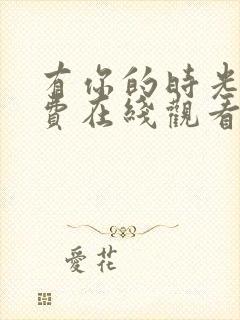 有你的時光
費在綫觀看
愛花